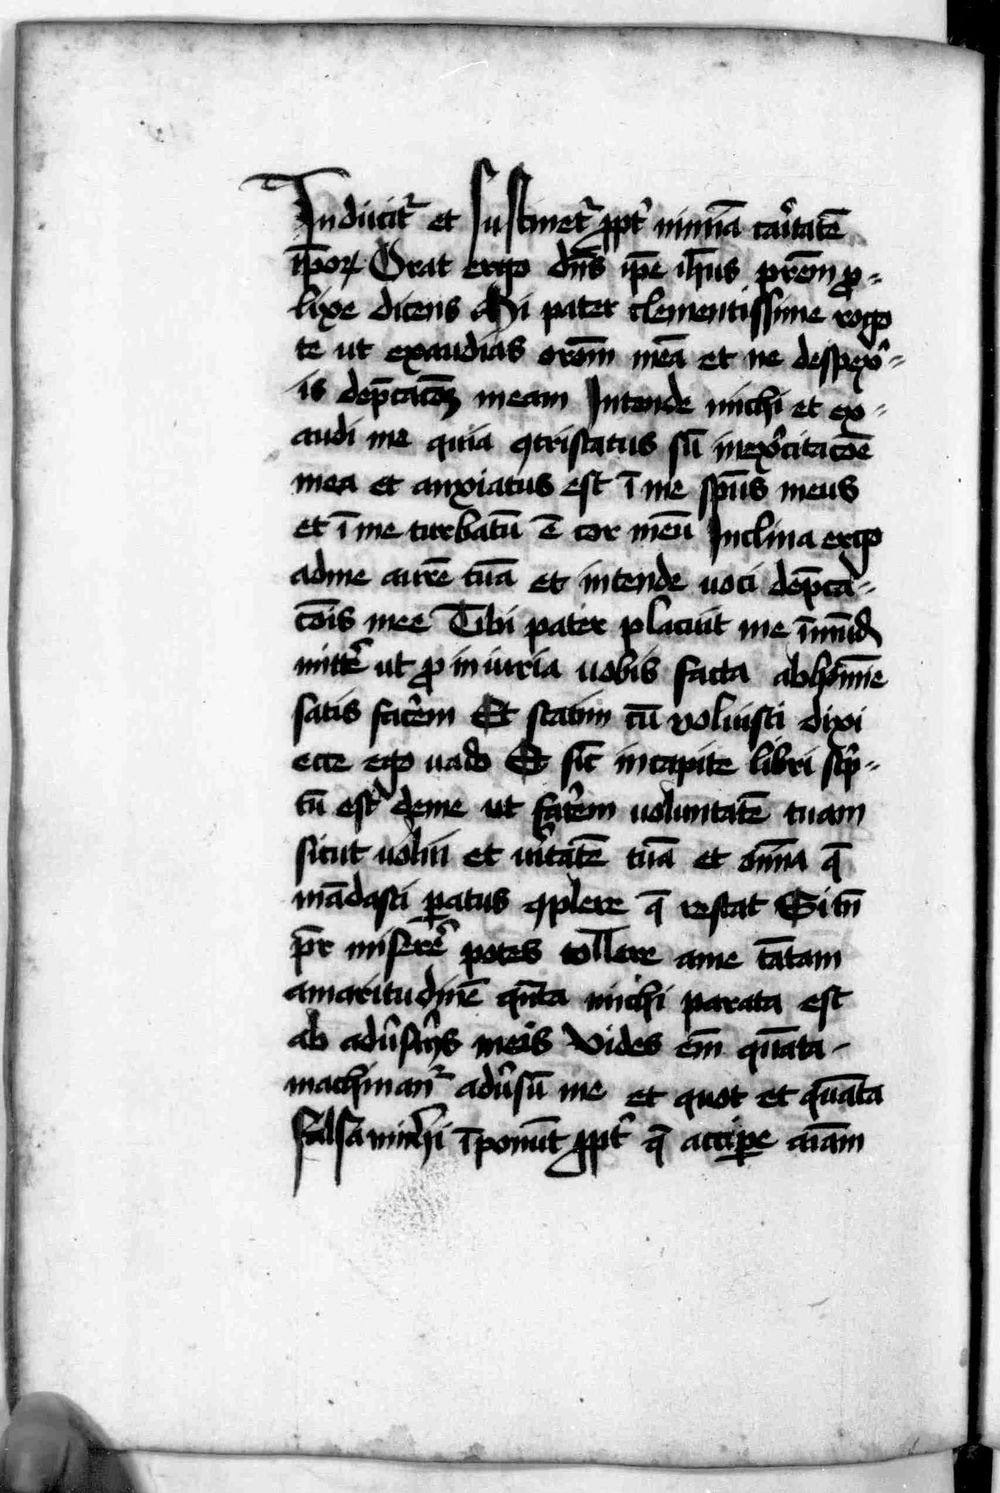 Inducit᷑ et sustinet᷑ ꝓpt̾ nimiā caᷓitatē
ip̄oꝝ Orat ergo dn̄s ip̄e ih̄us pr̄em ꝓ-
lixe dicens Mi pater clementissime rogo
te ut exaudias or̄om meā et ne despex̾-
is dep̄cacōꝫ meam Intende michi et ex-
audi me quia ꝯtristatus sū inex̾citacōe
mea et anxiatus est ī me sp̄us meus
et ī me turbatū ē cor meū Inclina ergo
adme aurē tuā et intende uoci dep̄ca-
cōis mee Tibi pater placuit me ī mūd
mitte̾ ut ꝓ iniuria uobis facta abhōmīe
satis fac̾em Et statim cū voluisti dixi
ecce ego uado Et sic̄ incapite libri sc̾p-
tū est deme ut fac̾em voluntatē tuam
sicut uolui et u̾itatē tuā et om̄ia q̄
mādasti ꝑatus ꝯplere q̄ restat Si tn̄
pr̄ misere̾ potes tollere ame tātam
amaritudinē qn̄ta michi parata est
ab adu̾sarijs meis Vides em̄ quāta
machinan᷑ adu̾sū me et quot et quāta
falsa michi īponūt ꝓpt̾ q̄ acciꝑe aīam